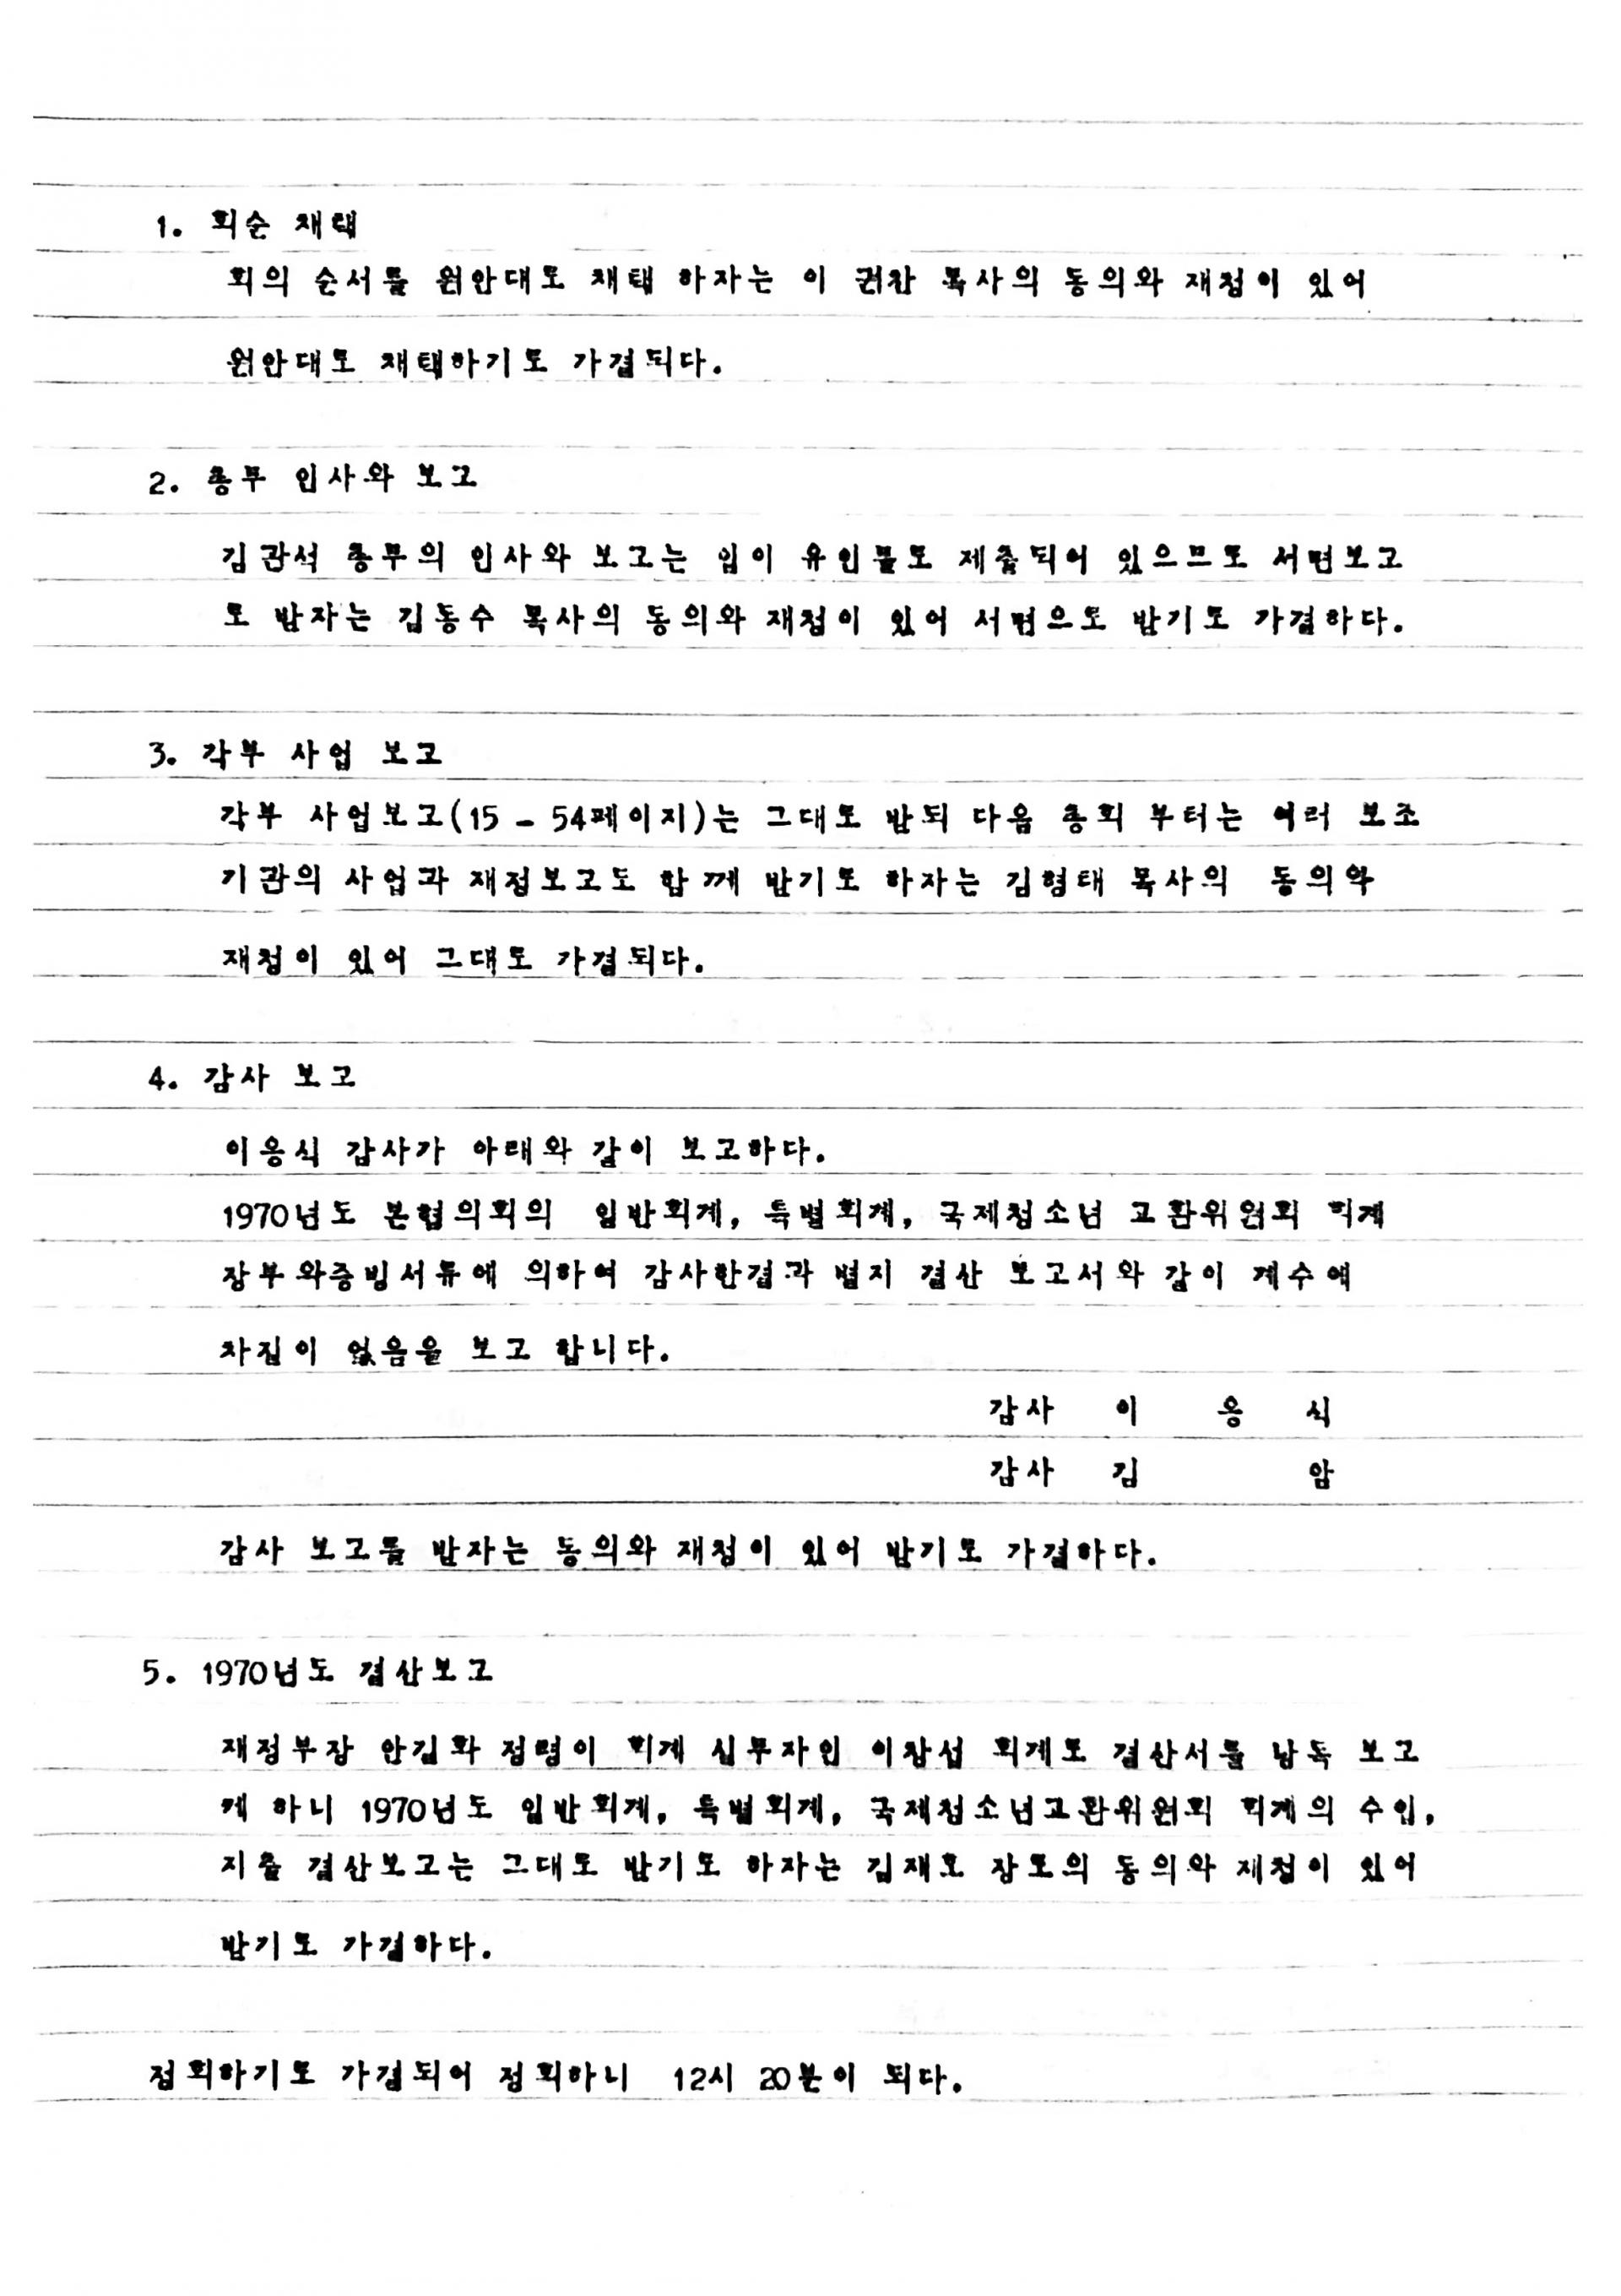 1. 회순 채택
회의 순서를 원안대로 채택 하자는 이 권찬 목사의 동의와 재청이 있어
원안대로 채택하기로 가결되다.
2. 총무 인사와 보고
김관석 총무의 인사와 보고는 임이 유인물로 제출되어 있으므로 서면보고
로 받자는 김동수 목사의 동의와 재청이 있어 서면으로 받기로 가결하다.
3. 각부 사업 보고
각부 사업보고(15 - 54페이지)는 그대로 받되 다음 총회 부터는 여러 보조
기관의 사업과 재정보고도 함께 받기로 하자는 김형태 목사의 동의와
재청이 있어 그대로 가결되다.
4. 감사 보고
이응식 감사가 아래와 같이 보고하다.
1970년도 본협의회의 일반회계, 특별회계, 국제청소년 교환위원회 회계
장부와증빙서류에 의하여 감사한결과 별지 결산 보고서와 같이 계수에
차질이 없음을 보고 합니다.
감사 이 응 식
감사 김 암
감사 보고를 받자는 동의와 재청이 있어 받기로 가결하다.
5. 1970년도 결산보고
재정부장 안길화 정령이 회계 실무자인 이창섭 회계로 결산서를 낭독 보고
케 하니 1970년도 일반회계, 특별회계, 국제청소년교환위원회 회계의 수입,
지출 결산보고는 그대로 받기로 하자는 김재호 장로의 동의와 재청이 있어
받기로 가결하다.
정회하기로 가결되어 정회하니 12시 20분이 되다.